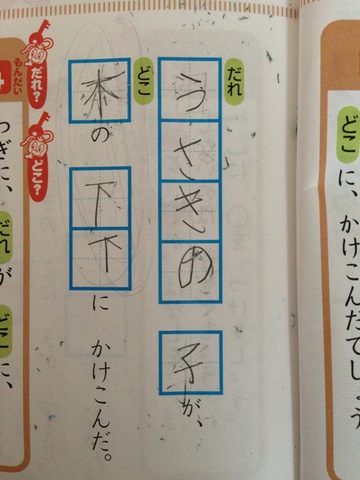 どこに、かけこんだでしょう
だれ
うさきの子が、
どこ
木の下下に かけこんだ。
もんだい
だれ?
どこ?
つぎに、だれが どこに、